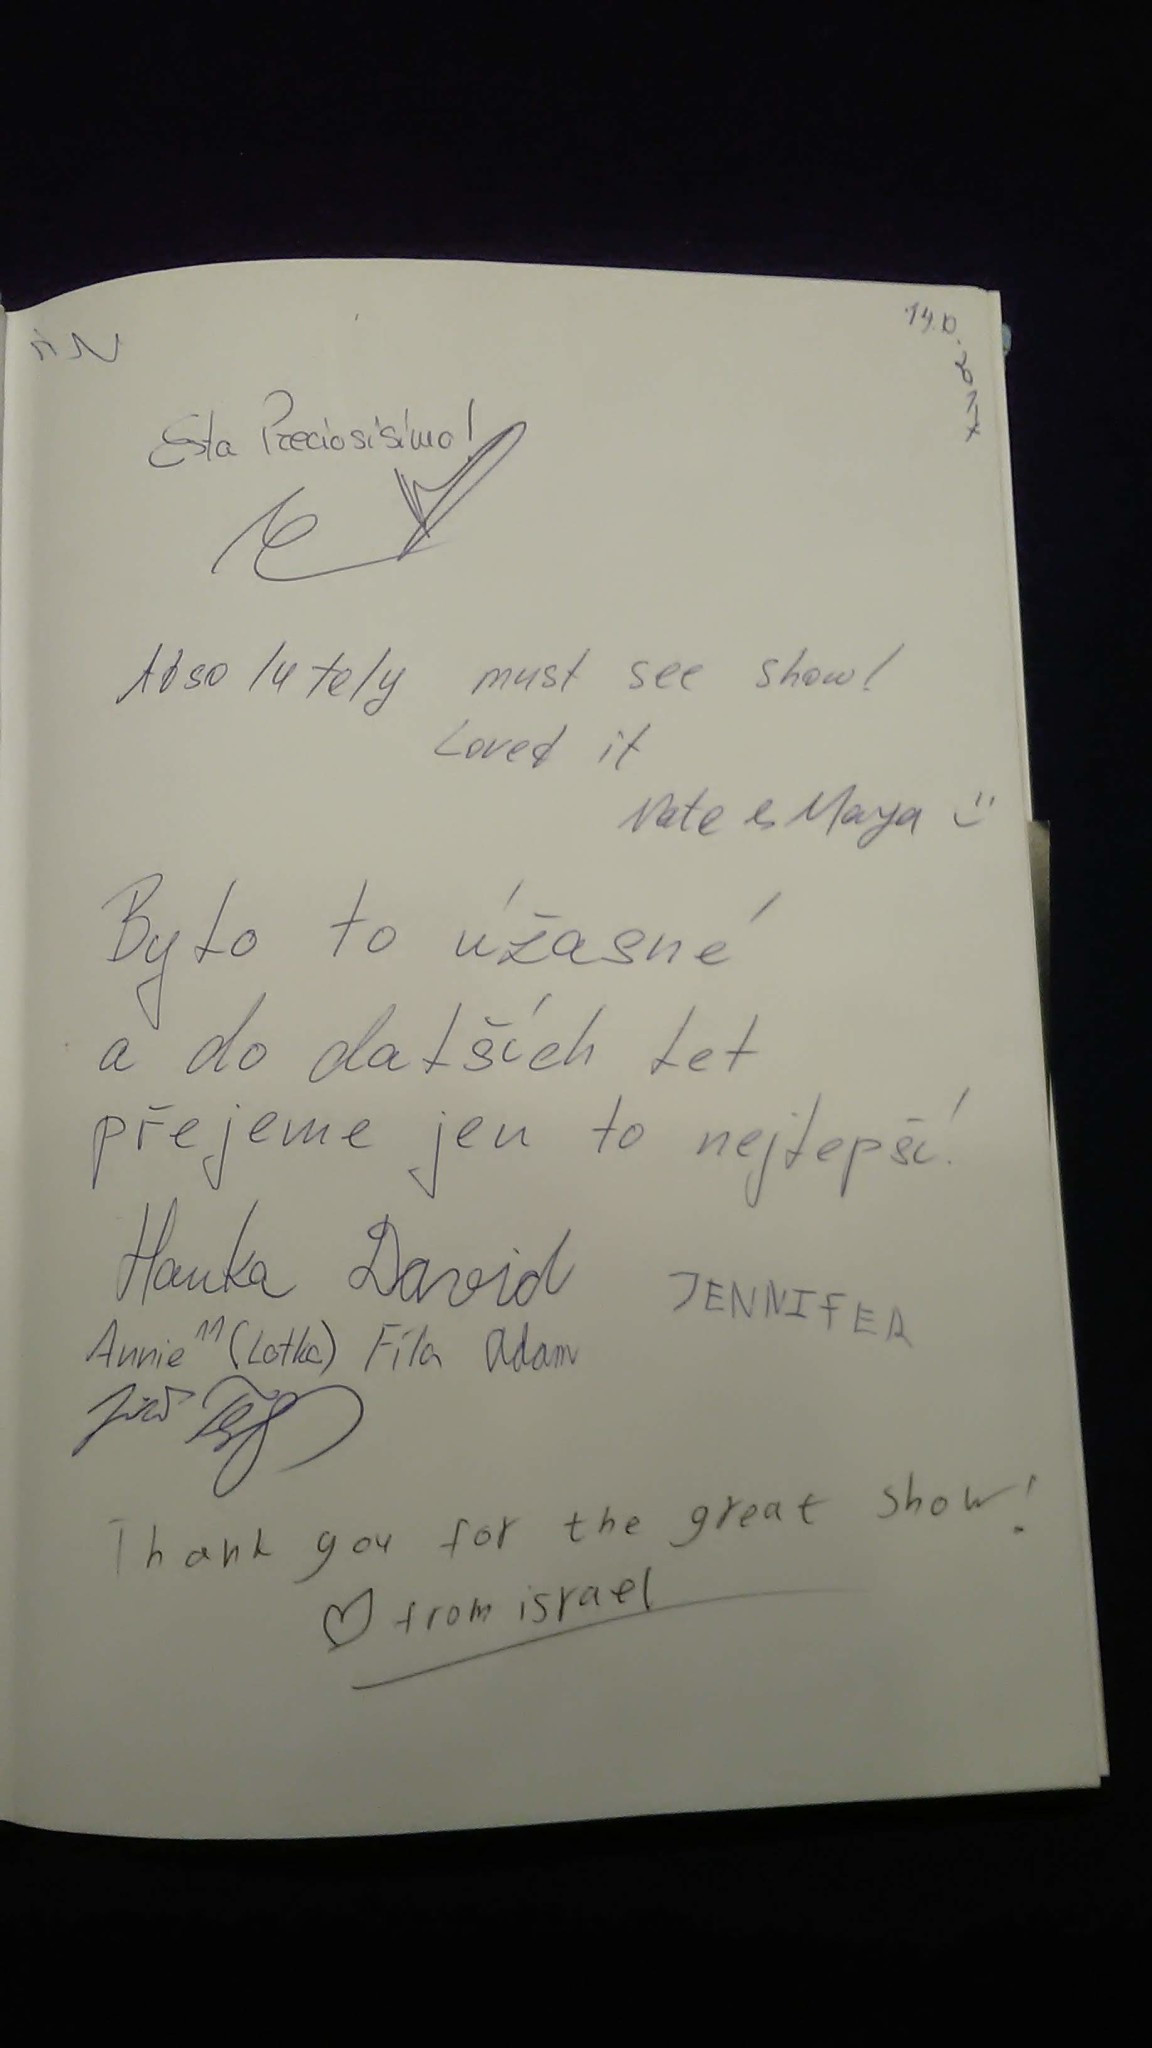 Esta Preciosísimo!
Absolutely must see show!
Loved it
Nate & Maya
Bylo to úžasné
a do dalších let
přejeme jen to nejlepší!
Hanka David
JENNIFER
Annie (Lotka) Fíla Adam
Jiří
Thank you for the great show!
from israel